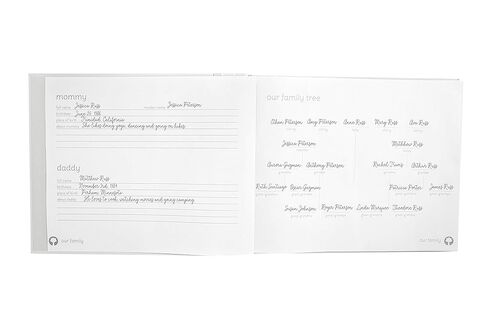 mommy
full name Jessica Russ maiden name Jessica Peterson
birthdate June 26, 1986
place of birth Trinidad, California
about mommy She likes doing yoga, dancing and going on hikes.
daddy
full name Matthew Russ
birthdate November 2nd, 1984
place of birth Perham, Minnesota
about daddy He loves to cook, watching movies and going camping.
our family
our family tree
Ethan Peterson Amy Peterson Anne Russ Mary Russ Alex Russ
Jessica Peterson Matthew Russ
Aurora Guzman Anthony Peterson Rachel Arthur Russ
Ruth Santiago Oscar Guzman Patricia Porter James Russ
Susan Johnson Roger Peterson Linda Marquez Theodore Russ
our family